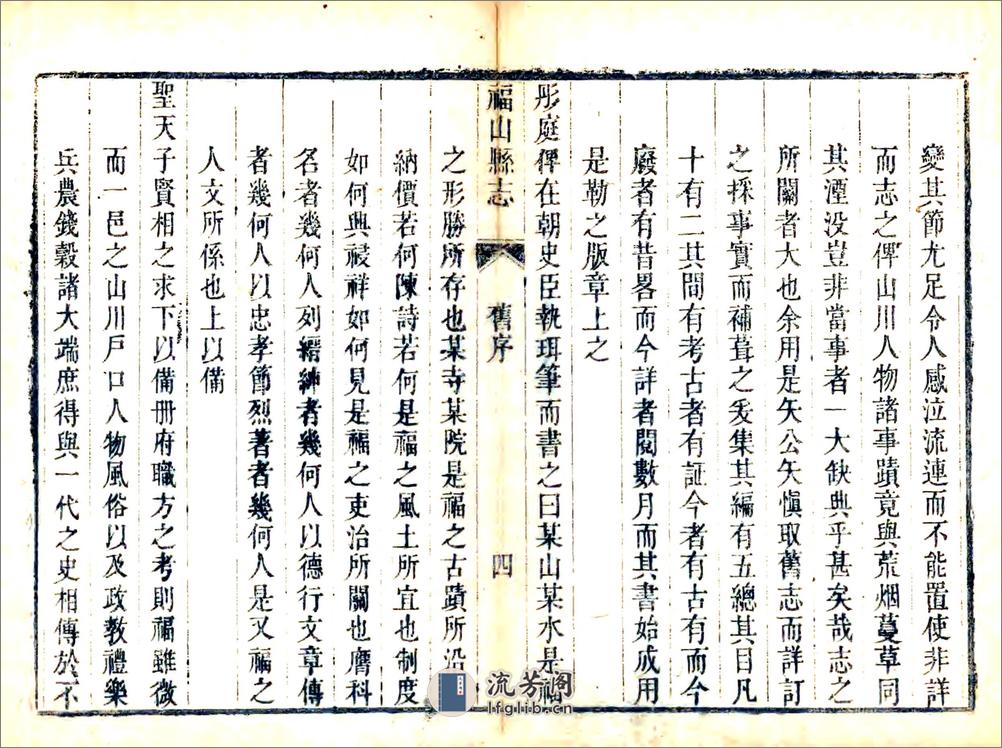 變其節尤足令人感泣流連而不能置使非詳
而志之俾山川人物諸事蹟竟與荒烟蔓草同
其湮没豈非當事者一大缺典乎甚矣哉志之
所關者大也余用是矢公矢愼取舊志而詳訂
之採事實而補葺之爰集其編有五總其目凡
十有二其間有考古者有証今者有古有而今
廢者有昔畧而今詳者閱數月而其書始成用
是勒之版章上之
彤庭俾在朝史臣執珥筆而書之曰某山某水是福
福山縣志 舊序 四
之形勝所存也某寺某院是福之古蹟所沿
納價若何陳詩若何是福之風土所宜也制度
如何興祲祥如何見是福之吏治所關也膺科
名者幾何人列縉紳者幾何人以德行文章傳
者幾何人以忠孝節烈著者幾何人是又福之
人文所係也上以備
聖天子賢相之求下以備冊府職方之考則福雖微
而一邑之山川戶口人物風俗以及政教禮樂
兵農錢穀諸大端庶得與一代之史相傳於不
流芳閣
lfglib.cn